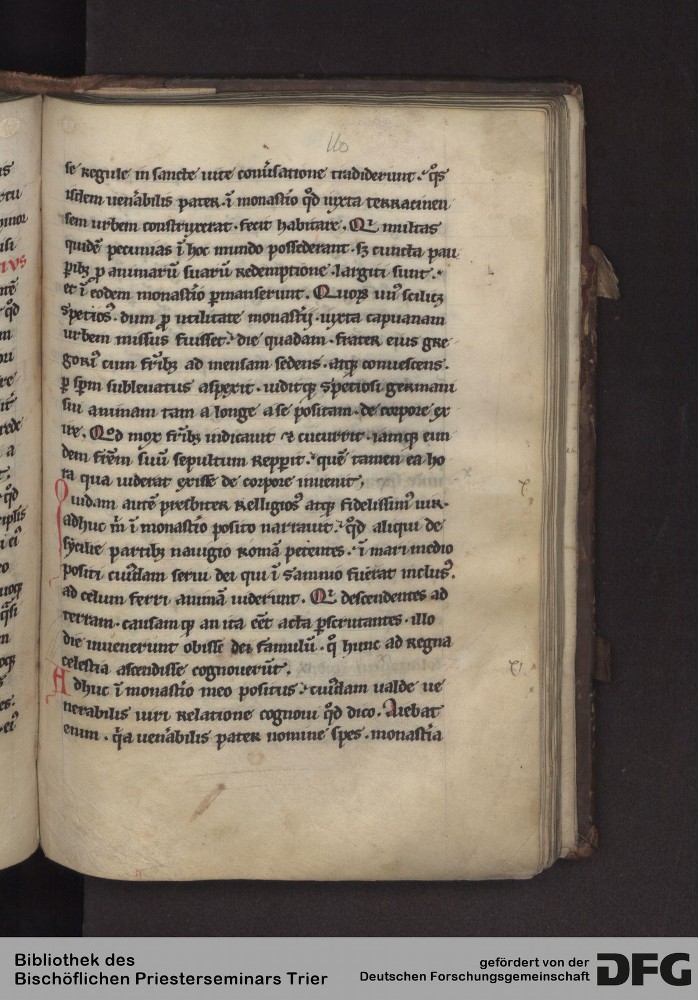 110
se regule in sancte uite conu̓satione tradiderunt. q̊s
isdem uen̓abilis pater. ī monast̓io q̊d iuxta terracinen
sem urbem construxerat. fecit habitare. Qi multas
quidē pecunias ī hoc mundo possederant. sꝫ cuncta pau
ꝑibꝫ ꝓ animarū suarū redemptione largiti sunt.
et ī eodem monast̓io ꝑmanserunt. Quoꝝ un᾽ scilicꝫ
speciosꝰ. dum ꝓ utilitate monast̓ij. iuxta capuanam
urbem missus fuisset. die quadam. frater eius gre
goriꝰ cum fr̄ibꝫ ad mensam sedens. atqꝫ conuescens.
ꝑ sp̄m subleuatus aspexit. uiditqꝫ speciosi germani
sui animam tam a longe a se positam. de corpore ex
ire. Qd̊ mox fr̄ibꝫ indicauit ⁊ cucurrit. iamqꝫ eun
dem fr̄em suū sepultum repꝑit. quē tamen ea ho
ra qua uiderat exisse de corpore inuenit.
Quidam autē presbiter relligiosꝰ atqꝫ fidelissimꝰ uir.
adhuc m̄ ī monast̓io posito narrauit. q̊d aliqui de
sycilie partibꝫ nauigio romā petentes. ī mari medio
positi cuiꝰdam serui dei qui ī samnio fuerat inclusꝰ.
ad celum ferri animā uiderunt. Qi descendentes ad
terram. causamqꝫ an ita eēt acta ꝑscrutantes. illo
die inuenerunt obisse dei famulū. q̊ hunc ad regna
celestia ascendisse cognouerūt.
Adhuc ī monast̓io meo positus. cuiꝰdam ualde ue
nerabilis uiri relatione cognoui q̊d dico. Aiebat
enim. q̓a uen̓abilis pater nomine spes. monast̓ia
Bibliothek des
Bischöflichen Priesterseminars Trier
gefördert von der
Deutschen Forschungsgemeinschaft
DFG